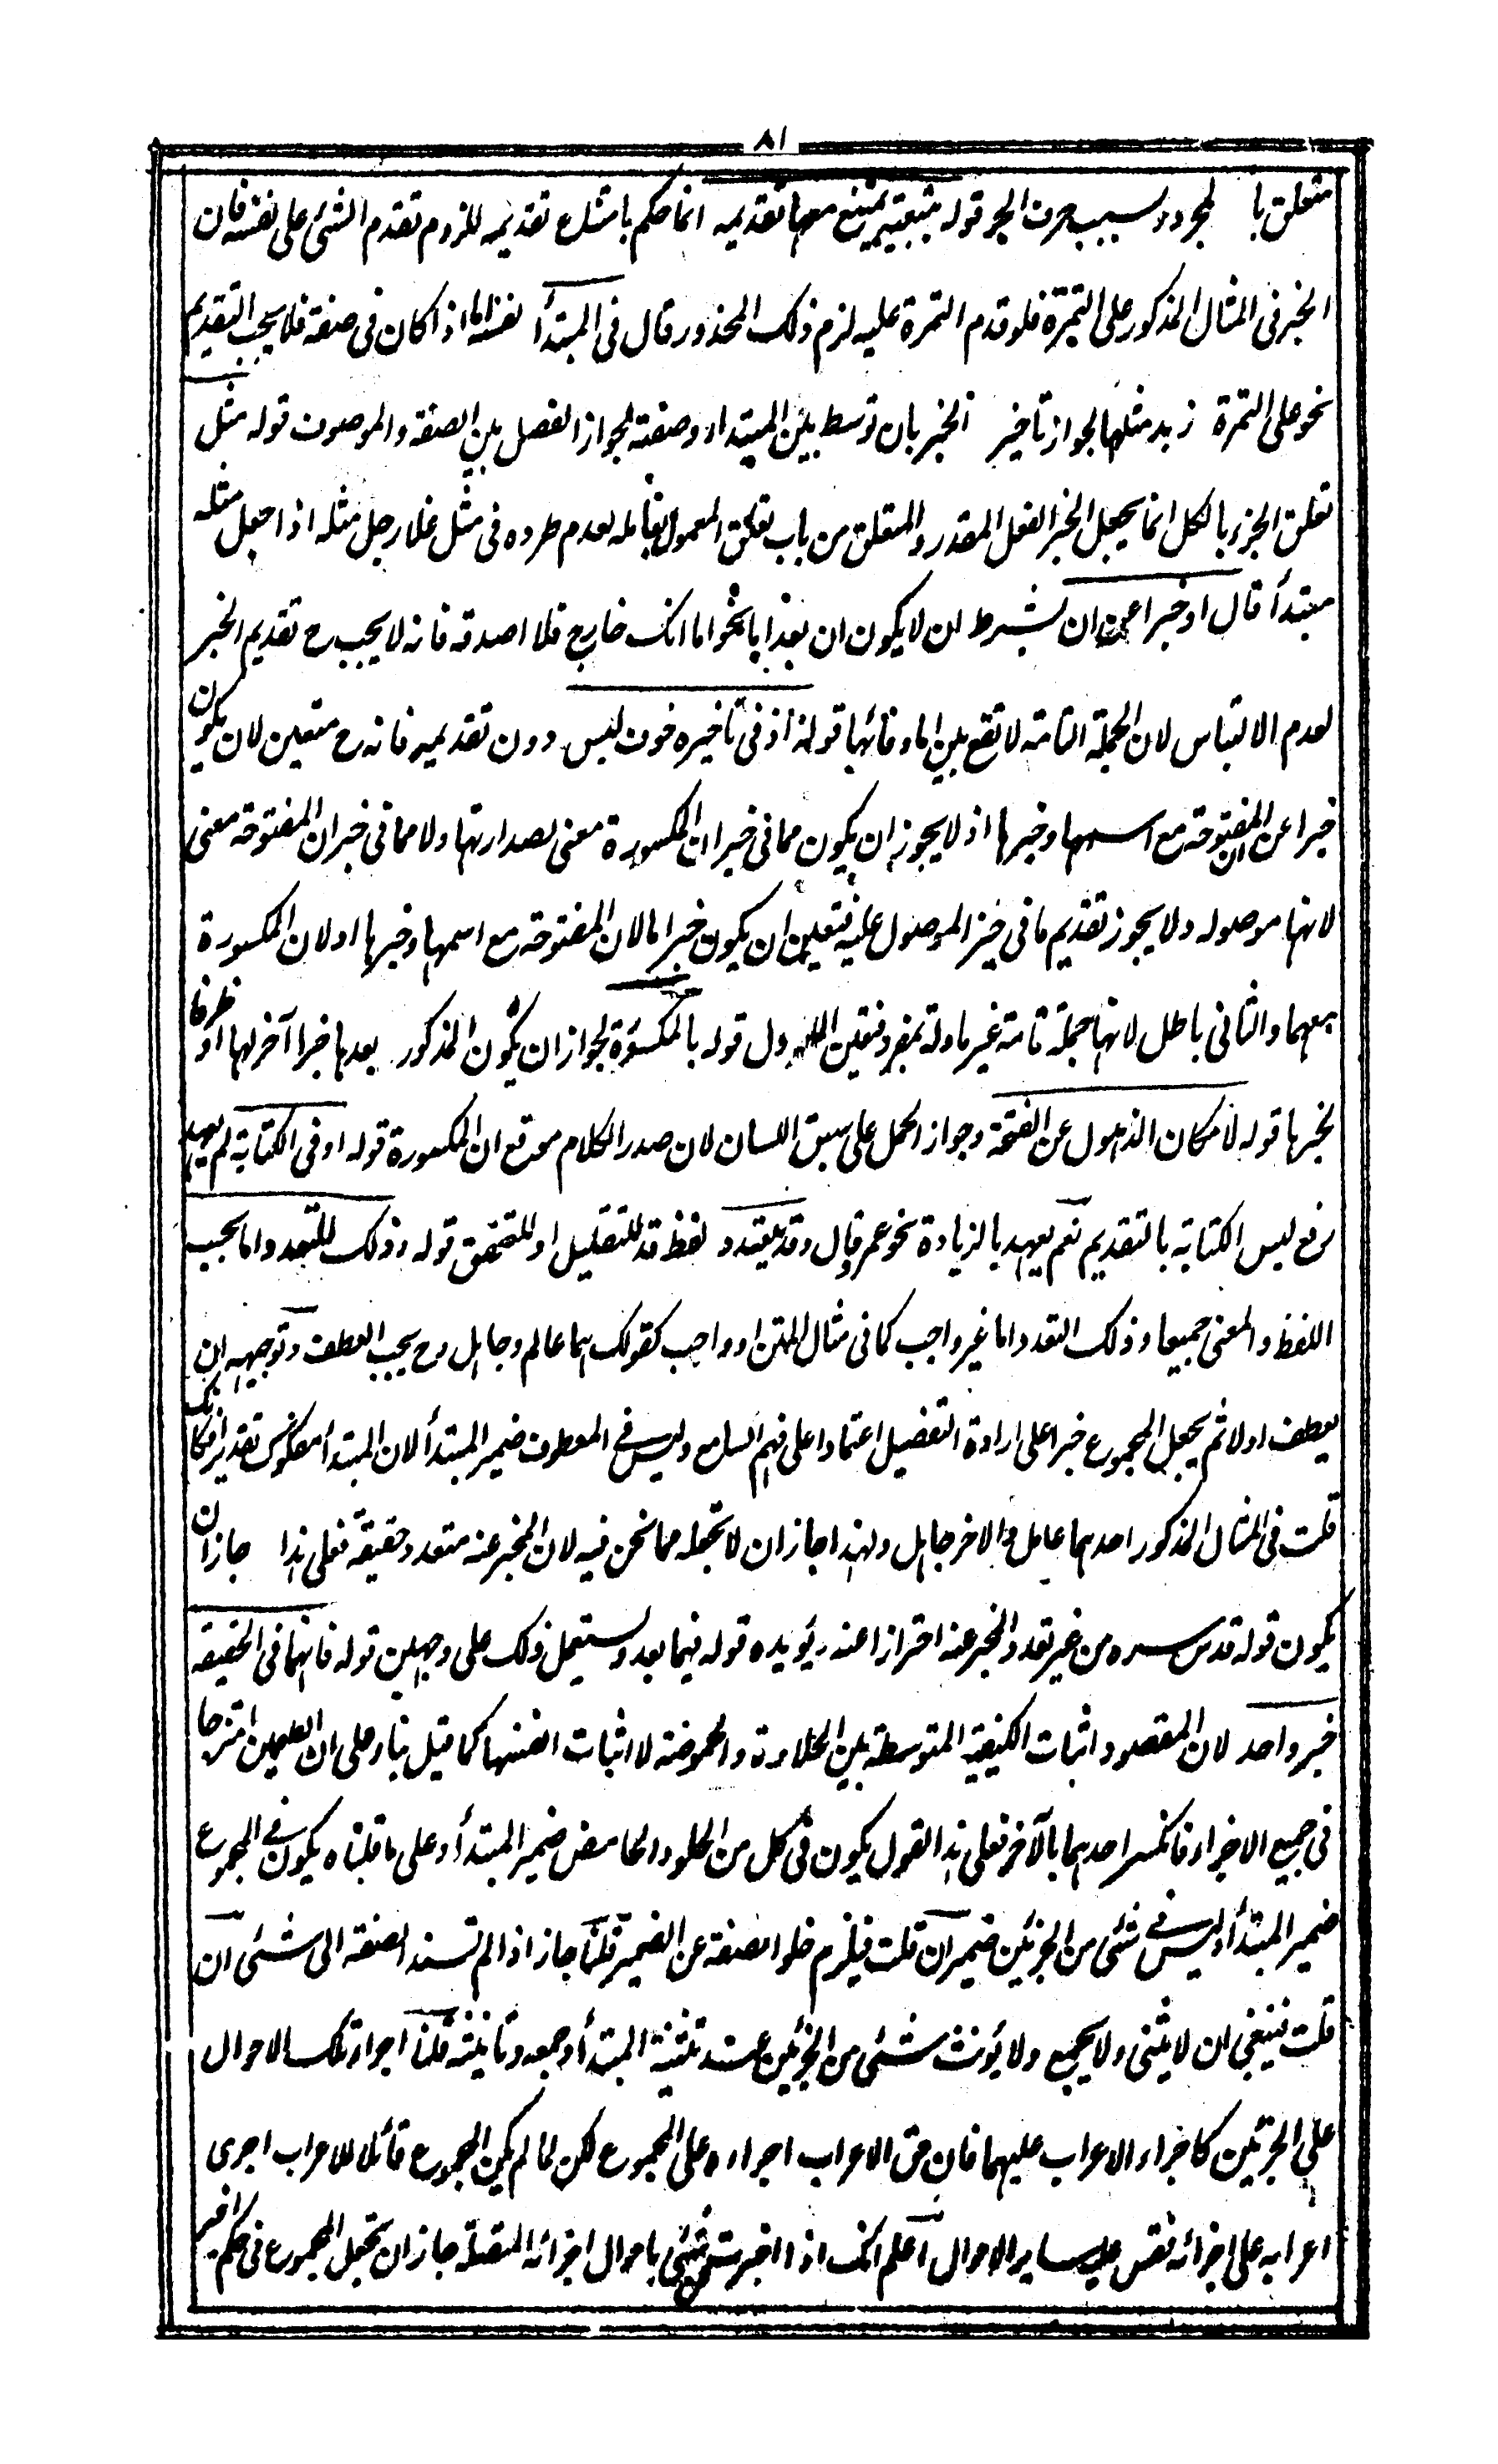 ٨١
متعلق با لمجرور بسبب حرف الجر قوله بتبعية يمتنع معها تقديمه انما حكم بامتناع تقديمه للزوم تقدم الشئ على نفسه فان
الخبر فى المثال المذكور على التمرة فلو قدم التمرة عليه لزم ذلك المحذور قال فى المبتدأ نفسه اما اذا كان فى صفته فلا يجب التقديم
نحو على التمرة زبد مثلها لجواز تاخير الخبر بان توسط بين المبتداء وصفته لجواز الفصل بين الصفة والموصوف قوله مثل
تعلق الجزء بالكل انما يجعل الخبر الفعل المقدر والمتعلق من باب تعلق المعمول بعامله لعدم طرده فى مثل غلا رجل مثله اذا جعل مثله
مبتدأ قال او خبرا عن ان بشرط ان لا يكون ان بعد اما نحو اما انك خارج فلا اصدقه فانه لا يجب ح تقديم الخبر
لعدم الالتباس لان الجملة التامة لا تقع بين اما وفائها قوله اذ فى تاخيره خوف لبس دون تقديمه فانه ح متعين لان يكون
خبرا عن ان المفتوحة مع اسمها وخبرها اذ لا يجوز ان يكون مما فى خبر ان المكسورة معنى لصدارتها ولا مما فى خبر ان المفتوحة معنى
لانها موصوله ولا يجوز تقديم ما فى حيز الموصول عليه فتعين ان يكون خبرا اما لان المفتوحة مع اسمها وخبرها او لان المكسورة
معهما والثانى باطل لانها جملة تامة غير ماولة بمفرد فتعين الاول قوله بالمكسورة لجواز ان يكون المذكور بعدها خبرا آخر لها او ظرفا
لخبرها قوله لامكان الذهول عن الفتحة وجواز الحمل على سبق اللسان لان صدر الكلام موقع ان المكسورة قوله او فى الكتابة لم يعهد
رفع لبس الكتابة بالتقديم نعم يعهد بالزيادة نحو عمرو قال وقد يتعدد لفظ قد للتقليل او للتحقق قوله وذلك التعدد اما بحسب
اللفظ والمعنى جميعا وذلك التعدد اما غير واجب كما فى مثال المتن او واجب كقولك هما عالم وجاهل وح يجب العطف وتوجيهه ان
يعطف اولا ثم يجعل المجموع خبرا على ارادة التفصيل اعتمادا على فهم السامع وليس فى المعطوف ضمير المبتدأ لان المبتدأ مفكوك تقديرا فكانك
قلت فى المثال المذكور احدهما عامل والاخر جاهل ولهذا جاز ان لا تجعله مما نحن فيه لان المخبر عنه متعدد حقيقة فعلى هذا جاز ان
يكون قوله قدس سره من غير تعدد المخبر عنه احترازا عنه ويؤيده قوله فيما بعد ويستعمل ذلك على وجهين قوله فانهما فى الحقيقة
خبر واحد لان المقصود اثبات الكيفية المتوسطة بين الحلاوة والحموضة لا اثبات انفسهما كما قيل بناء على ان الطعمين امتزجا
فى جميع الاجزاء فانكسر احدهما بالآخر فعلى هذا القول يكون فى كل من الحلو والحامض ضمير المبتدأ وعلى ما قلناه يكون فى المجموع
ضمير المبتدأ وليس فى شئ من الجزئين ضمير ان قلت فيلزم خلو الصفة عن الضمير قلنا جاز اذا لم تسند الصفة الى شئ ان
قلت فينبغى ان لا يثنى ولا يجمع ولا يؤنث شئ من الجزئين عند تثنية المبتدأ وجمعه وتانيثه قلنا اجراء تلك الاحوال
على الجزئين كاجراء الاعراب عليهما فان حق الاعراب اجراءه على المجموع لكن لما لم يكن المجموع قابلا للاعراب اجرى
اعرابه على اجزائه فقس عليه ساير الاحوال اعلم انك اذا اخبرت عن شئ باحوال اجزائه المتصلة جاز ان تجعل المجموع فى حكم